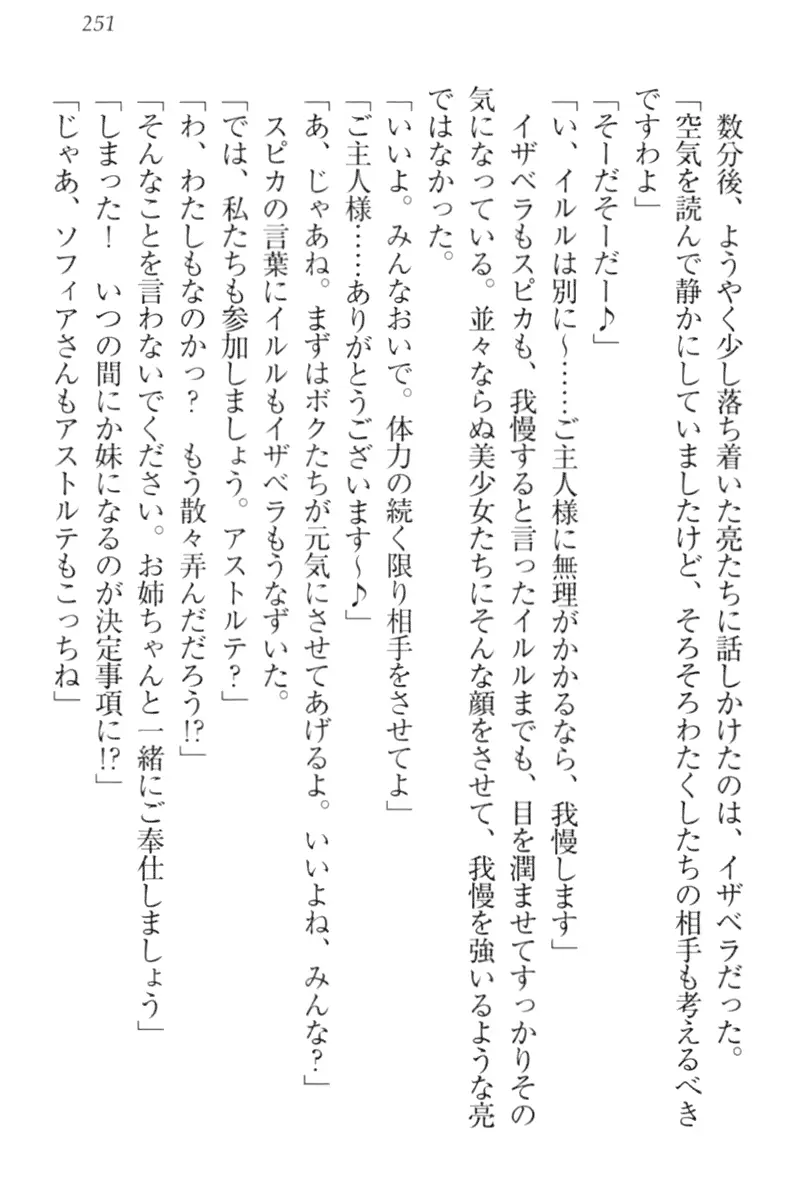 251
数分後、ようやく少し落ち着いた亮たちに話しかけたのは、イザベラだった。
「空気を読んで静かにしていましたけど、そろそろわたくしたちの相手も考えるべき
ですわよ」
「そーだそーだー♪」
「い、イルルは別に〜……ご主人様に無理がかかるなら、我慢します」
イザベラもスピカも、我慢すると言ったイルルまでも、目を潤ませてすっかりその
気になっている。並々ならぬ美少女たちにそんな顔をさせて、我慢を強いるような亮
ではなかった。
「いいよ。みんなおいで。体力の続く限り相手をさせてよ」
「ご主人様……ありがとうございます〜♪」
「あ、じゃあね。まずはボクたちが元気にさせてあげるよ。いいよね、みんな？」
スピカの言葉にイルルもイザベラもうなずいた。
「では、私たちも参加しましょう。アストルテ？」
「わ、わたしもなのかっ？　もう散々弄んだだろう!?」
「そんなことを言わないでください。お姉ちゃんと一緒にご奉仕しましょう」
「しまった！　いつの間にか妹になるのが決定事項に!?」
「じゃあ、ソフィアさんもアストルテもこっちね」